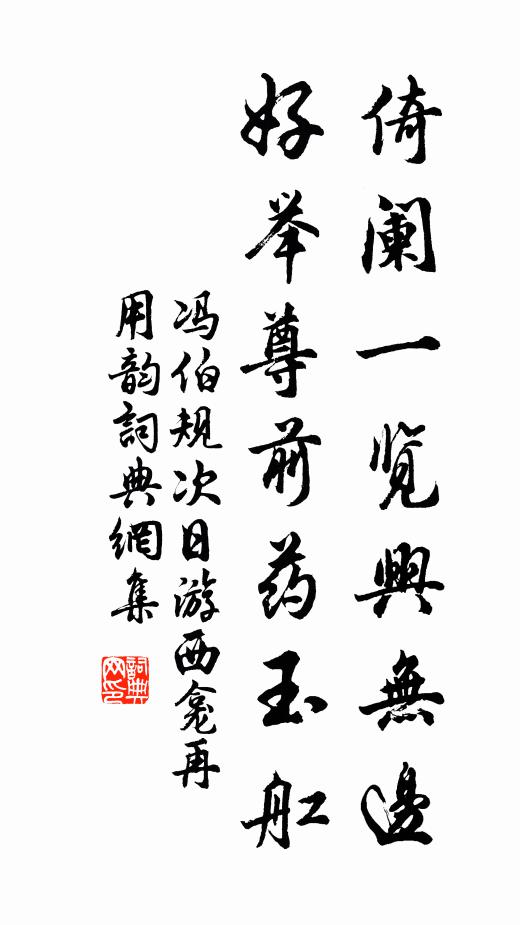 倚阑一览興無邊
好举尊前药玉舡
冯伯规次日游西龛再
用韵詞典網集
詞典網印